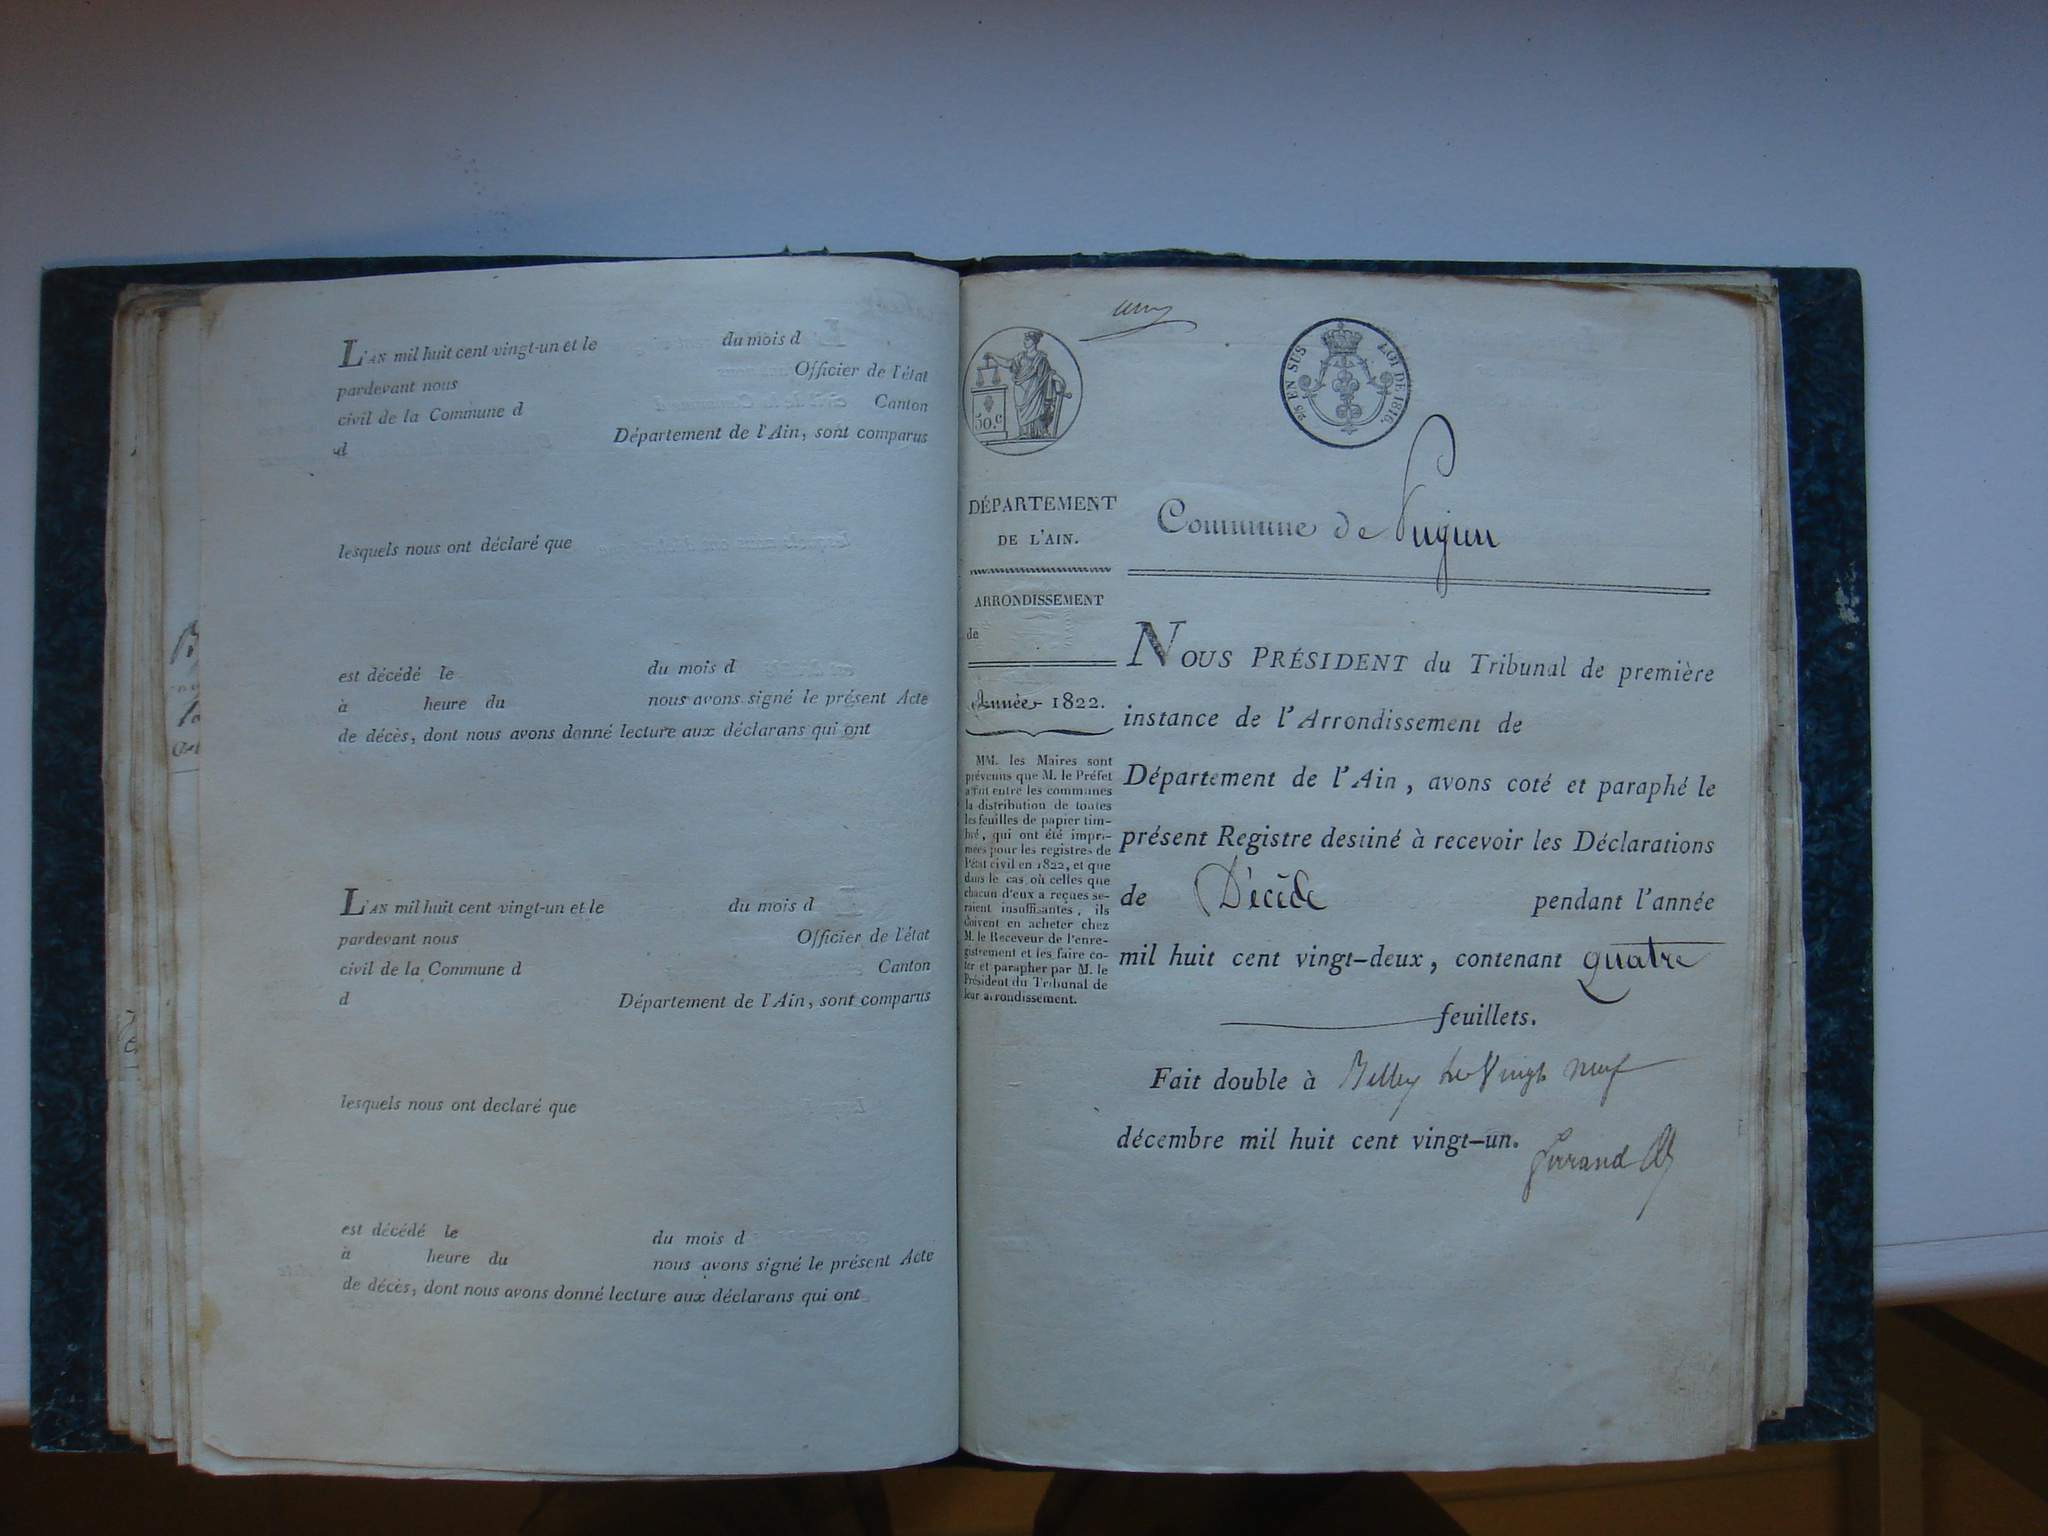 L'AN mil huit cent vingt-un et le du mois d
pardevant nous Officier de l'état
civil de la Commune d Canton
d Département de l'Ain, sont comparus
lesquels nous ont déclaré que
est décédé le du mois d
à heure du nous avons signé le présent Acte
de décès, dont nous avons donné lecture aux déclarans qui ont
L'AN mil huit cent vingt-un et le du mois d
pardevant nous Officier de l'état
civil de la Commune d Canton
d Département de l'Ain, sont comparus
lesquels nous ont declaré que
est décédé le du mois d
à heure du nous avons signé le présent Acte
de décès, dont nous avons donné lecture aux déclarans qui ont
50.c
25 EN SUS LOI DE 1816.
DÉPARTEMENT
DE L'AIN.
ARRONDISSEMENT
de
Année 1822.
MM. les Maires sont
prévenus que M. le Préfet
a fait entre les communes
la distribution de toutes
les feuilles de papier tim-
bré, qui ont été impri-
mées pour les registres de
l'état civil en 1822, et que
dans le cas où celles que
chacun d'eux a reçues se-
raient insuffisantes, ils
doivent en acheter chez
M. le Receveur de l'enre-
gistrement et les faire co-
ter et parapher par M. le
Président du Tribunal de
leur arrondissement.
Commune de Pugieu
NOUS PRÉSIDENT du Tribunal de première
instance de l'Arrondissement de
Département de l'Ain, avons coté et paraphé le
présent Registre destiné à recevoir les Déclarations
de Décède pendant l'année
mil huit cent vingt-deux, contenant quatre
feuillets.
Fait double à Belley le Vingt neuf
décembre mil huit cent vingt-un.